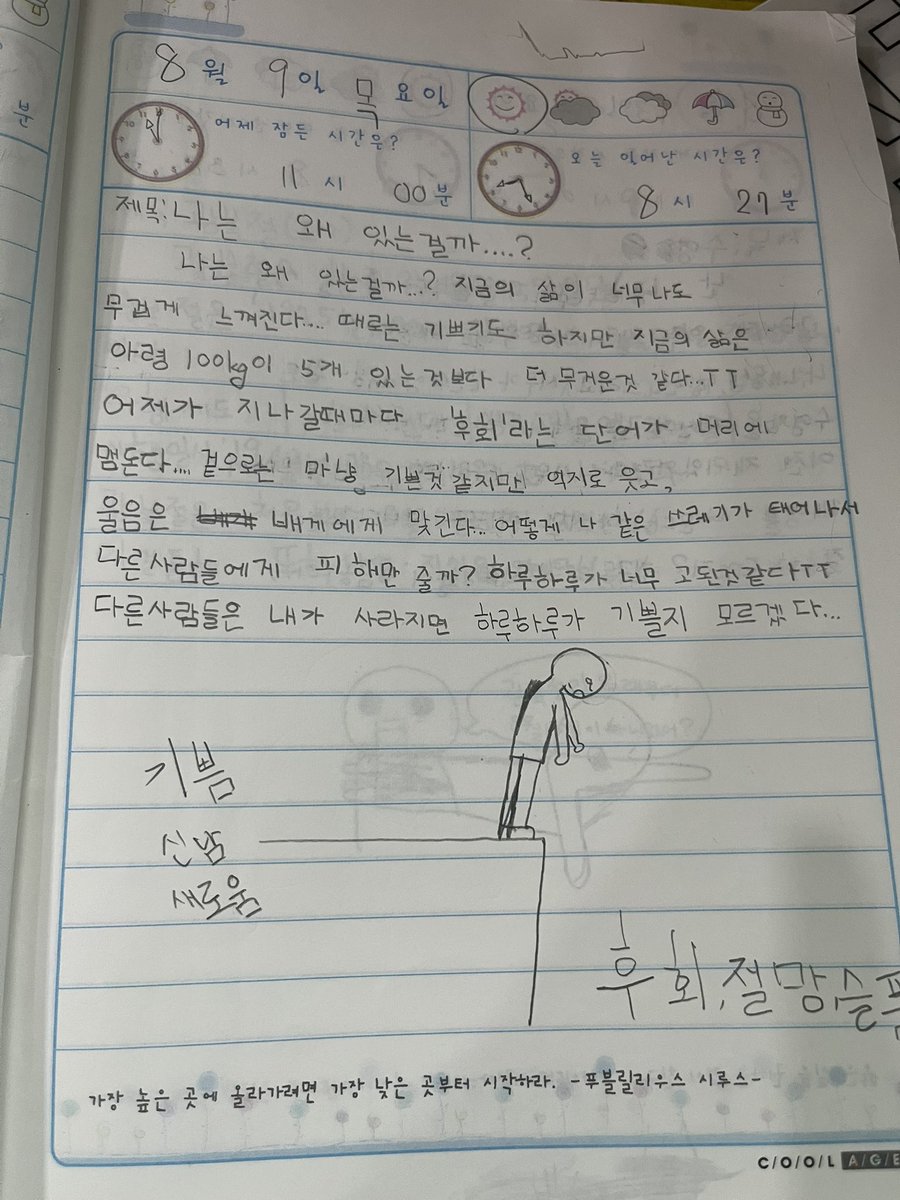 8월 9일 목요일
어제 잠든 시간은?
11시 00분
오늘 일어난 시간은?
8시 27분
제목:나는 왜 있는걸까....?
나는 왜 있는걸까...? 지금의 삶이 너무나도
무겁게 느껴진다.... 때로는 기쁘기도 하지만 지금의 삶은
아령 100kg이 5개 있는것보다 더 무거운것 같다..TT
어제가 지나갈때마다 '후회'라는 단어가 머리에
맴돈다.... 겉으로는 마냥 기쁜것 같지만 억지로 웃고,
울음은 배게에게 맞긴다... 어떻게 나 같은 쓰레기가 태어나서
다른사람들에게 피해만 줄까? 하루하루가 너무 고된것같다TT
다른사람들은 내가 사라지면 하루하루가 기쁠지 모르겠다...
기쁨
신남
새로움
후회,절망,슬픔
가장 높은 곳에 올라가려면 가장 낮은 곳부터 시작하라. -푸블릴리우스 시루스-
C/O/O/L A/G/E
분